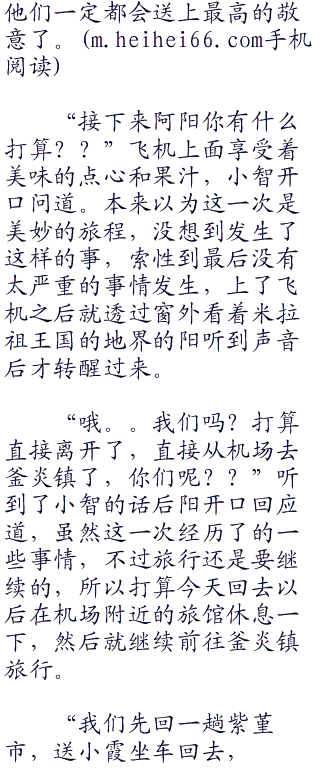 他们一定都会送上最高的敌
意了。(m.heihei66.com手机
阅读)
“接下来阿阳你有什么
打算？？”飞机上面享受着
美味的点心和果汁，小智开
口问道。本来以为这一次是
美妙的旅程，没想到发生了
这样的事，索性到最后没有
太严重的事情发生，上了飞
机之后就透过窗外看着米拉
祖王国的地界的阳听到声音
后才转醒过来。
“哦。。我们吗？打算
直接离开了，直接从机场去
釜炎镇了，你们呢？？”听
到了小智的话后阳开口回应
道，虽然这一次经历了的一
些事情，不过旅行还是要继
续的，所以打算今天回去以
后在机场附近的旅馆休息一
下，然后就继续前往釜炎镇
旅行。
“我们先回一趟紫堇
市，送小霞坐车回去，